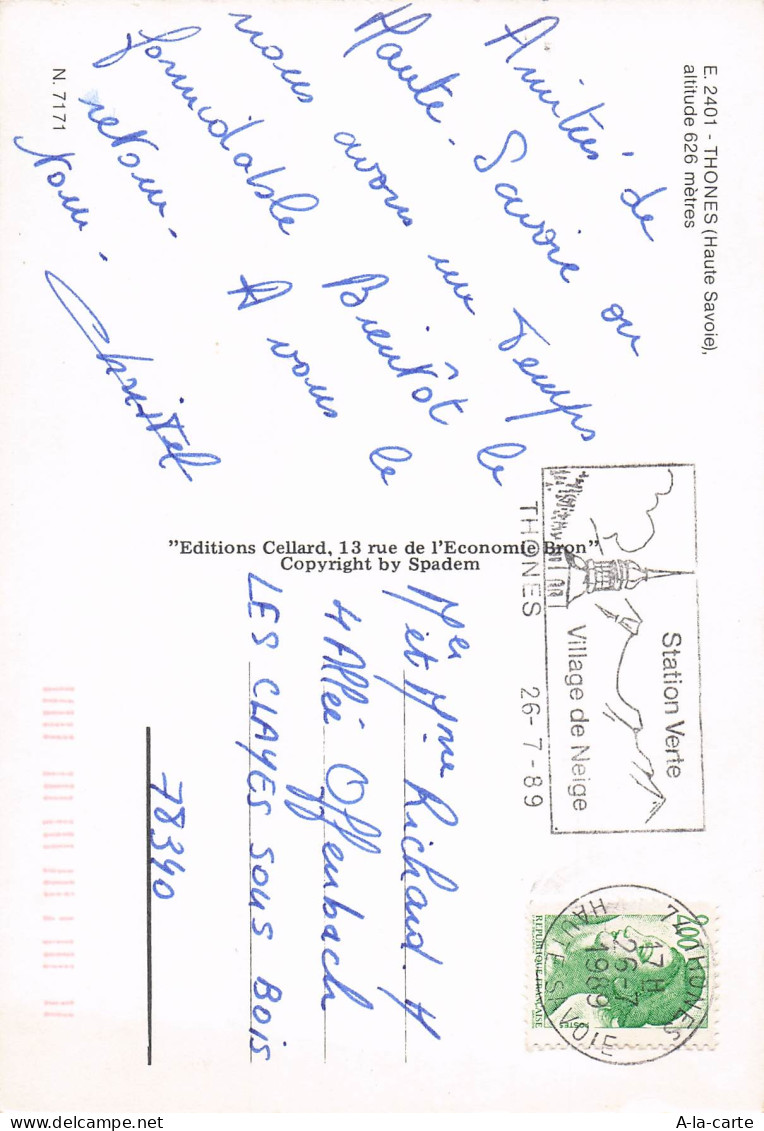 E. 2401 - THONES (Haute Savoie),
altitude 626 mètres
Amitiés de
Haute-Savoie ou
nous avons un Temps
formidable Bientôt le
retour. A vous le
votre.
Christel
N. 7171
"Editions Cellard, 13 rue de l'Economie Bron"
Copyright by Spadem
THONES 26-7-89
Station Verte
Village de Neige
74 THONES
17 H
26-7
1989
HAUTE SAVOIE
2,00
REPUBLIQUE FRANÇAISE
POSTES
Mer et Mme Richard. H
4 Allée Offenbach
LES CLAYES SOUS BOIS
78340
A-la-carte